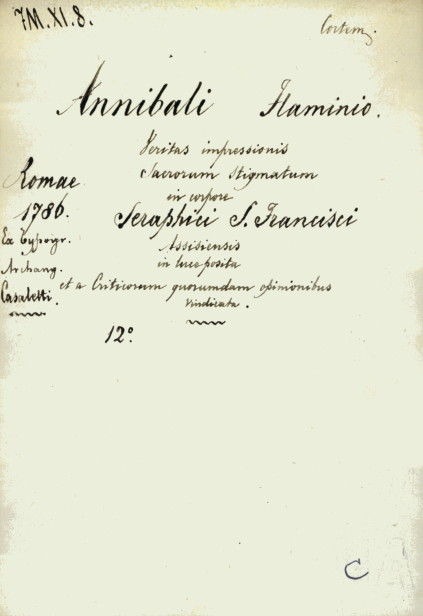 7M. XI. 8.
Annibali Flaminio.
Veritas impressionis
Sacrorum Stigmatum
in corpore
Seraphici S. Francisci
Assisiensis
in luce posita
et a Criticorum quorumdam opinionibus
vindicata.
Romae
1786.
Ex typogr.
Archang.
Casaletti.
12°
C